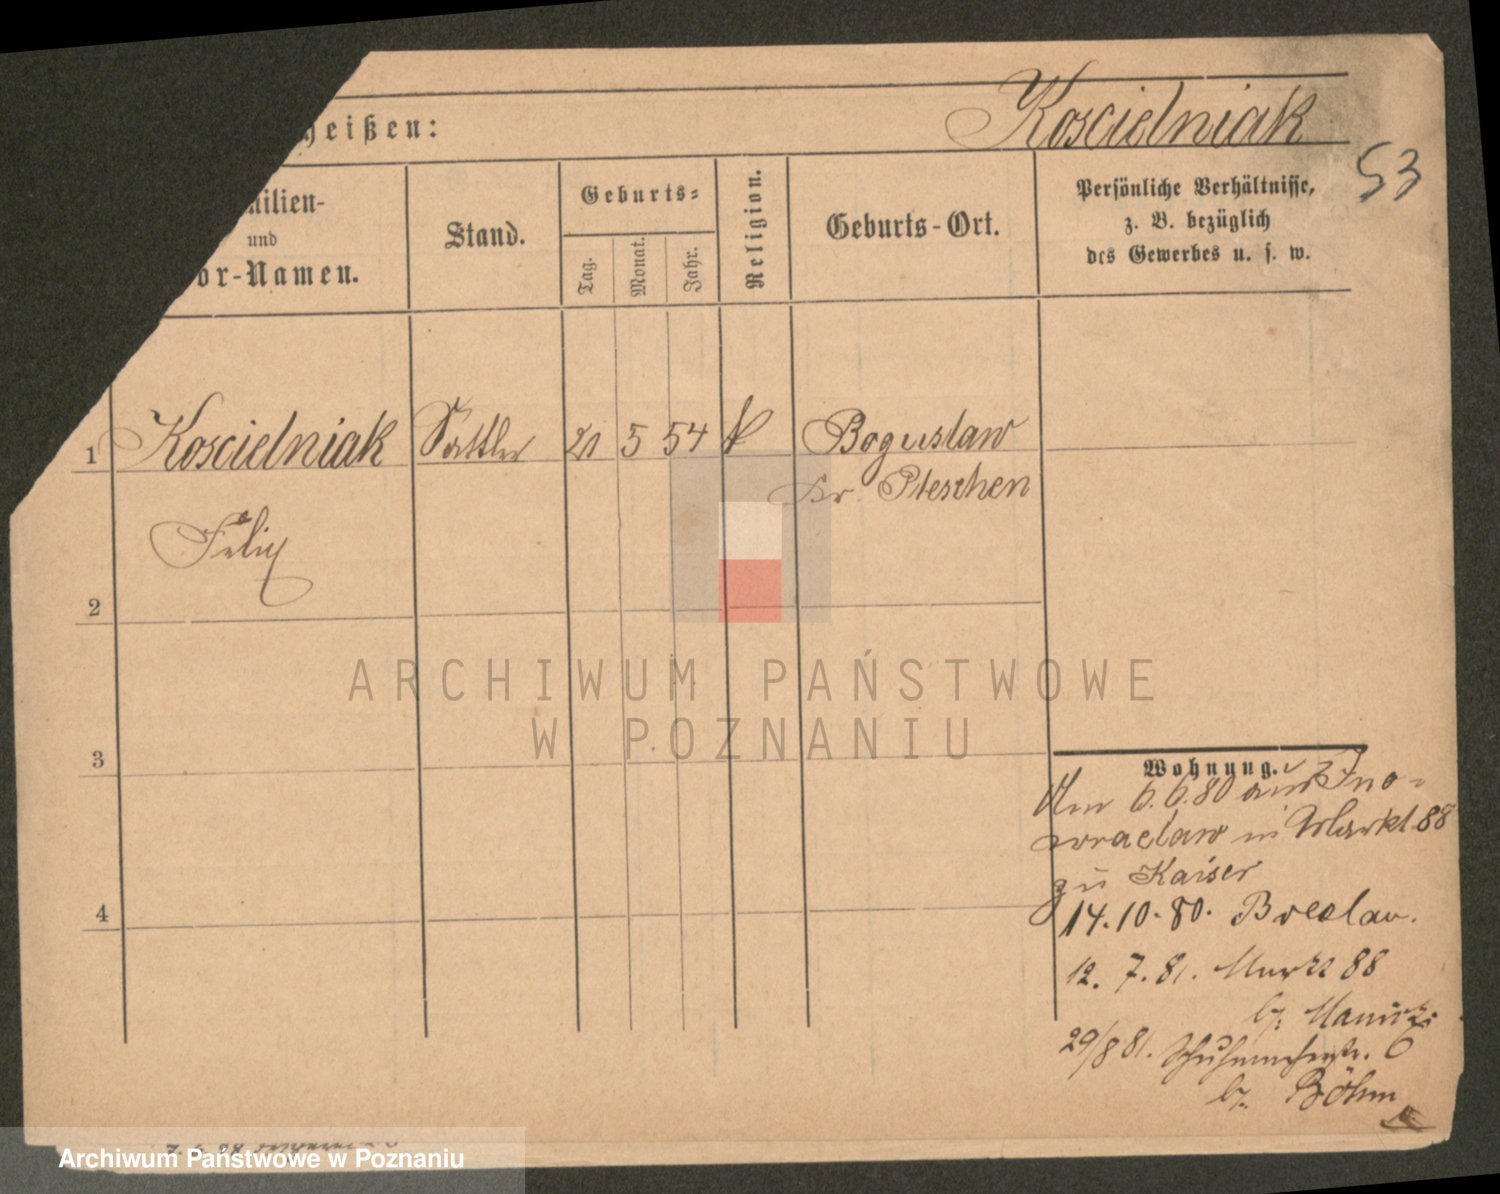 heißen:
Koscielniak
53
milien-
und
or-Namen.
Stand.
Geburts-
Tag.
Monat.
Jahr.
Religion.
Geburts-Ort.
Persönliche Verhältnisse,
z. B. bezüglich
des Gewerbes u. s. w.
1 Koscielniak Sattler 21 5 54 k Boguslaw
Kr. Pleschen
Felix
2
3
4
Wohnung.
Am 6.6.80 aus Ino-
wraclaw in Markt 88
zu Kaiser
14.10.80. Breslau.
12. 7. 81. Markt 88
b.
29/8 81. Schuhmacherstr. 6
b. Böhm
ARCHIWUM PAŃSTWOWE
W POZNANIU
Archiwum Państwowe w Poznaniu